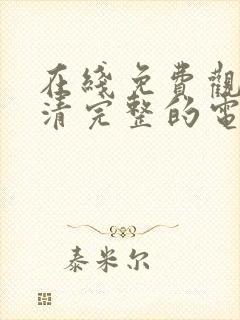 在綫免費觀
清完整的電
泰米尔